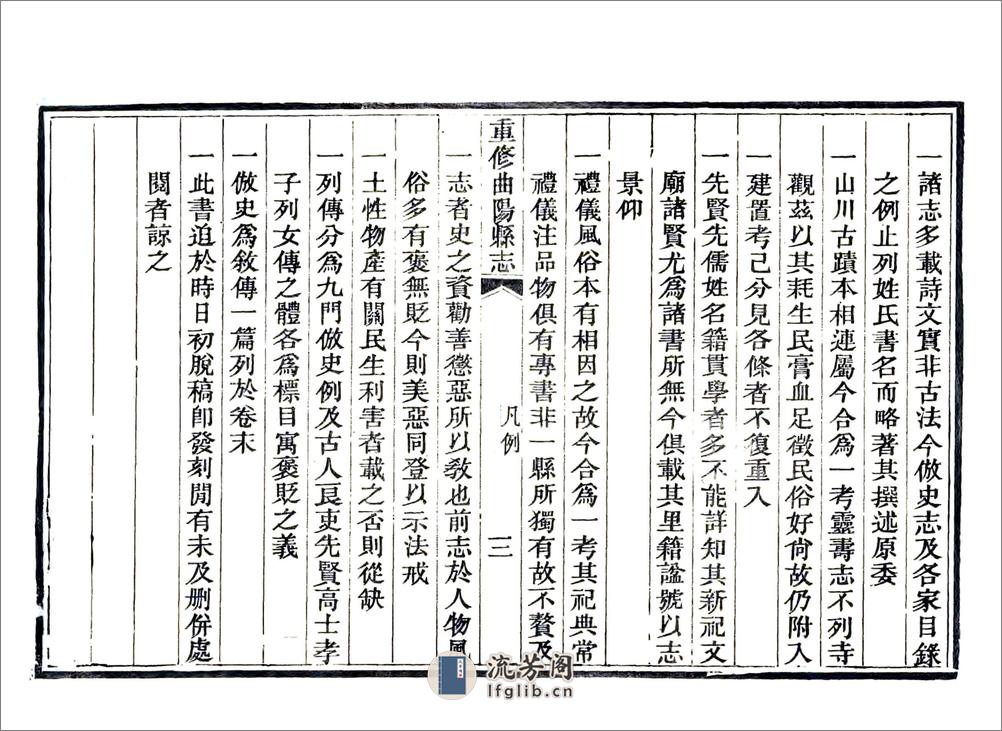 一諸志多載詩文實非古法今倣史志及各家目錄
之例止列姓氏書名而略著其撰述原委
一山川古蹟本相連屬今合爲一考靈壽志不列寺
觀茲以其耗生民膏血足徵民俗好尙故仍附入
一建置考已分見各條者不復重入
一先賢先儒姓名籍貫學者多不能詳知其新祀文
廟諸賢尤爲諸書所無今俱載其里籍諡號以志
景仰
一禮儀風俗本有相因之故今合爲一考其祀典常
禮儀注品物俱有專書非一縣所獨有故不贅及
重修曲陽縣志 凡例 三
一志者史之資勸善懲惡所以敎也前志於人物風
俗多有褒無貶今則美惡同登以示法戒
一土性物產有關民生利害者載之否則從缺
一列傳分爲九門倣史例及古人良吏先賢高士孝
子列女傳之體各爲標目寓褒貶之義
一倣史爲敘傳一篇列於卷末
一此書迫於時日初脫稿卽發刻閒有未及删併處
閱者諒之
流芳阁
lfglib.cn